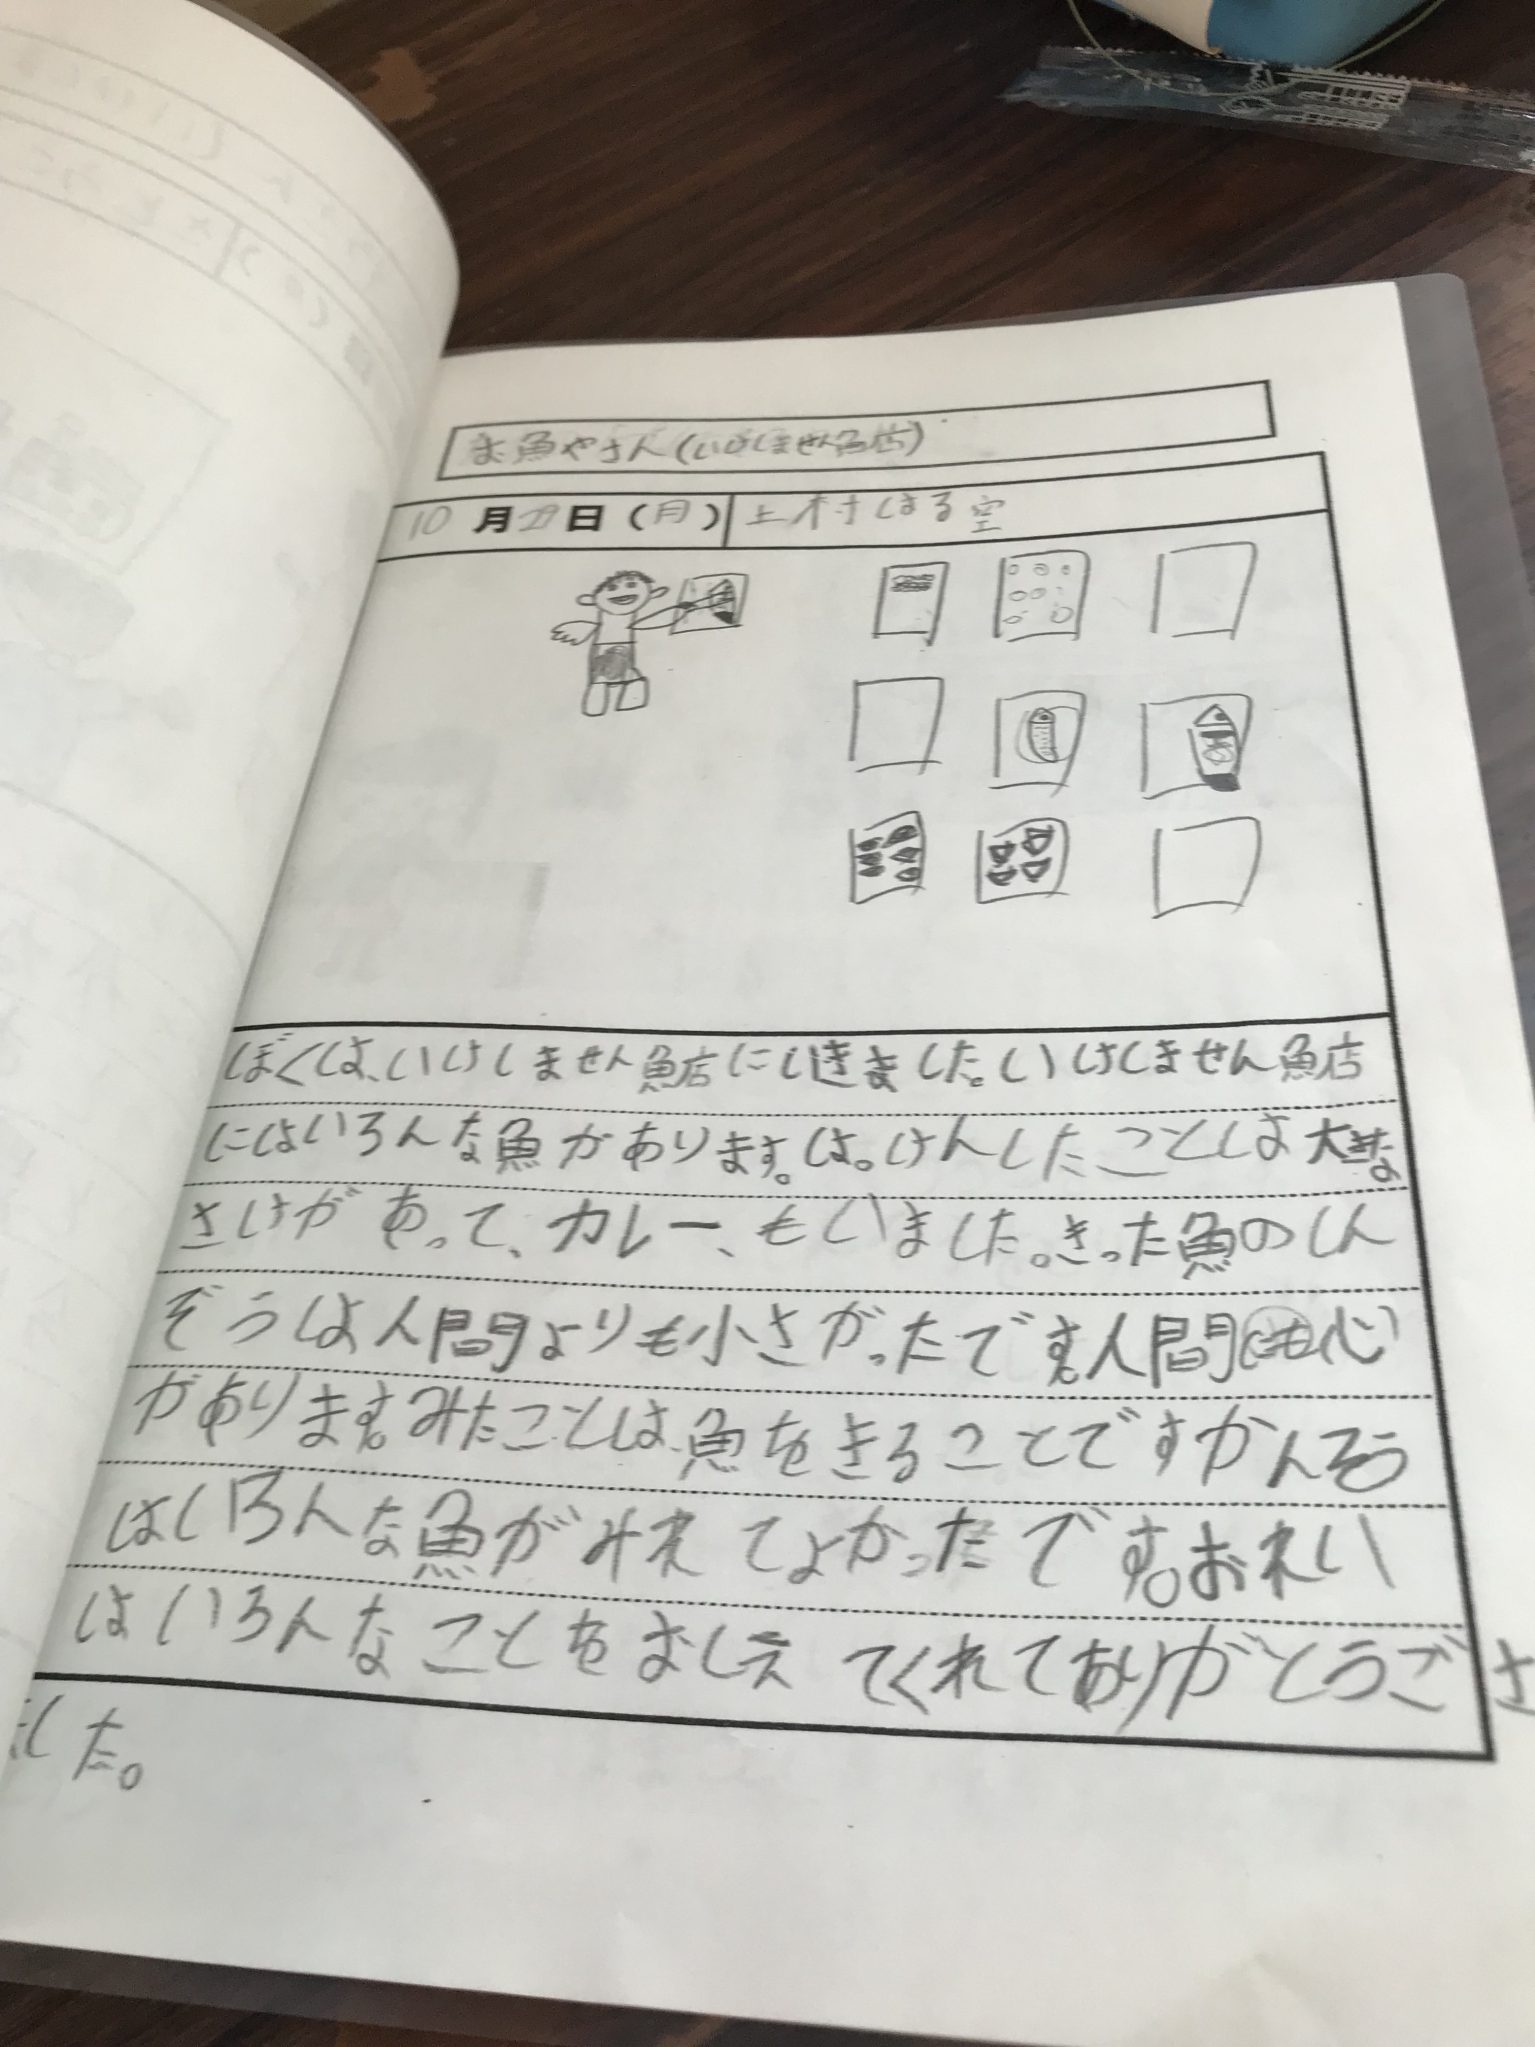 お魚やさん(いけしません魚店)
10月29日(月) 上村はる空
ぼくは、いけしません魚店にいきました。いけしません魚店
にはいろんな魚があります。は。けんしたことは大きな
さけがあって、カレー、もいました。きった魚のしん
ぞうは人間よりも小さがったです。人間にも心
があります。みたことは、魚をきることですかんそう
はいろんな魚がみれてよかったです。おれい
はいろんなことをおしえてくれてありがとうござ
ました。